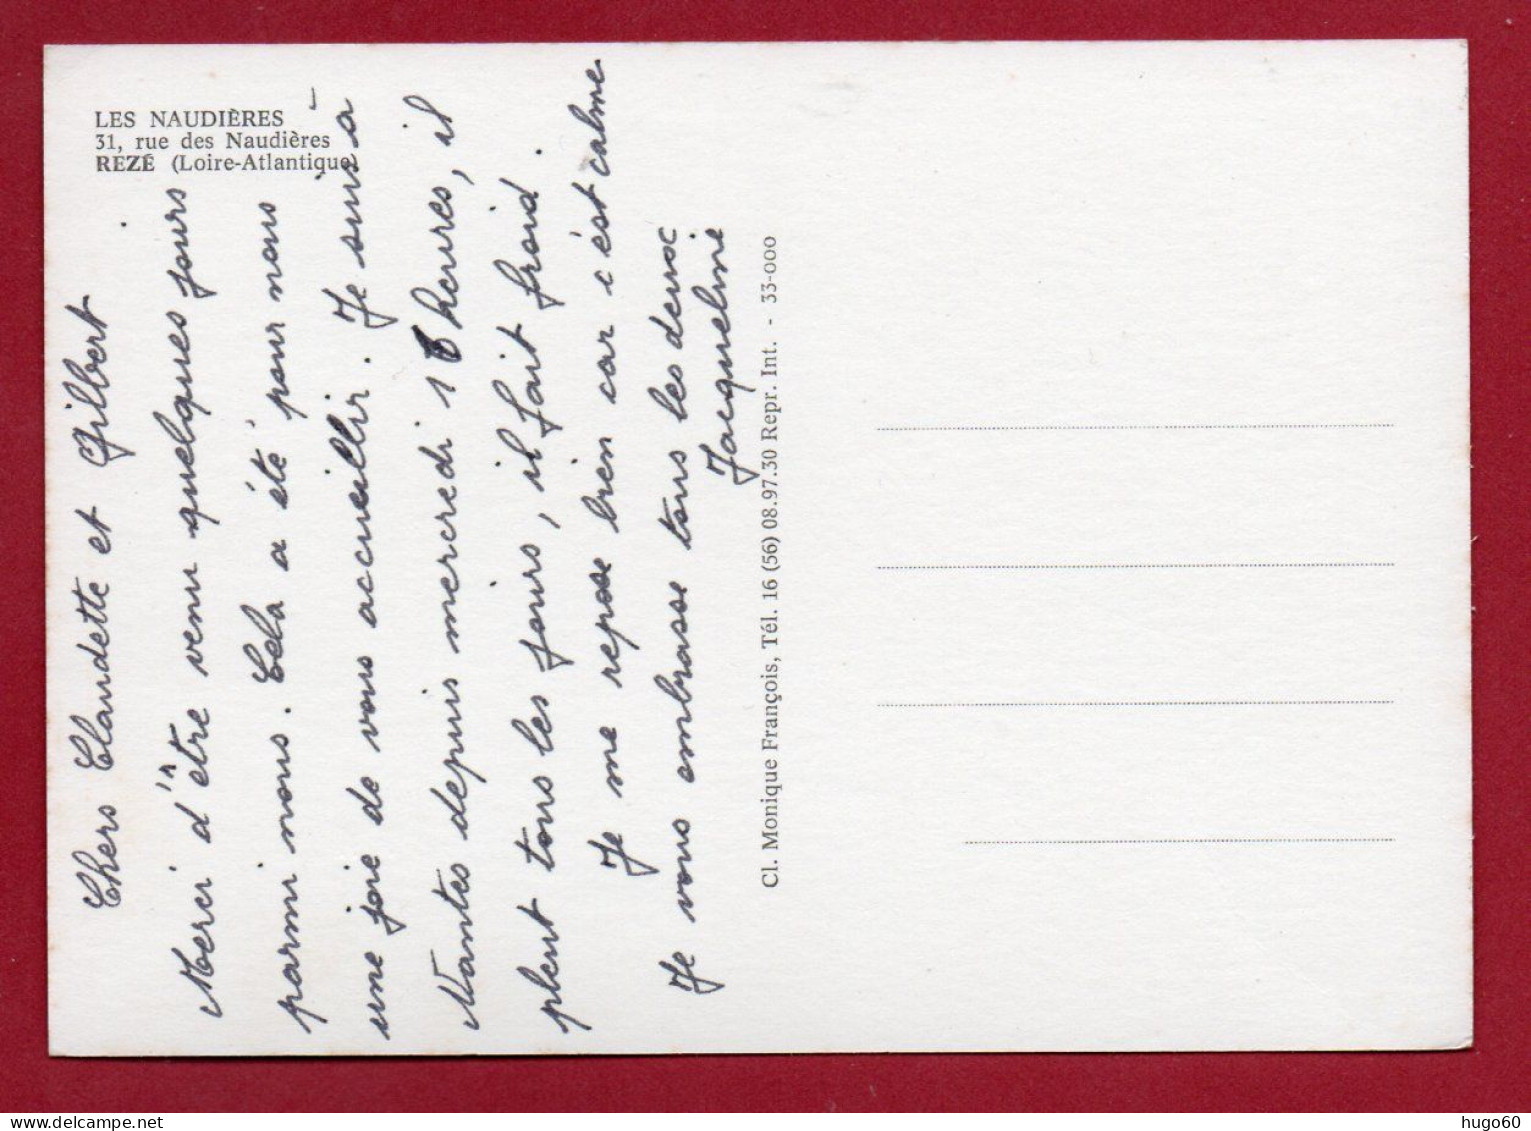 LES NAUDIÈRES
31, rue des Naudières
REZÉ (Loire-Atlantique)
Chers Claudette et Gilbert
Merci d'être venu quelques jours
parmi nous. Cela a été pour nous
une joie de vous accueillir. Je suis à
Nantes depuis mercredi 16 heures, il
pleut tous les jours, il fait froid.
Je me repose bien car c'est calme
Je vous embrasse tous les deux
Jacqueline
Cl. Monique François, Tél. 16 (56) 08.97.30 Repr. Int. - 33-000
hugo60